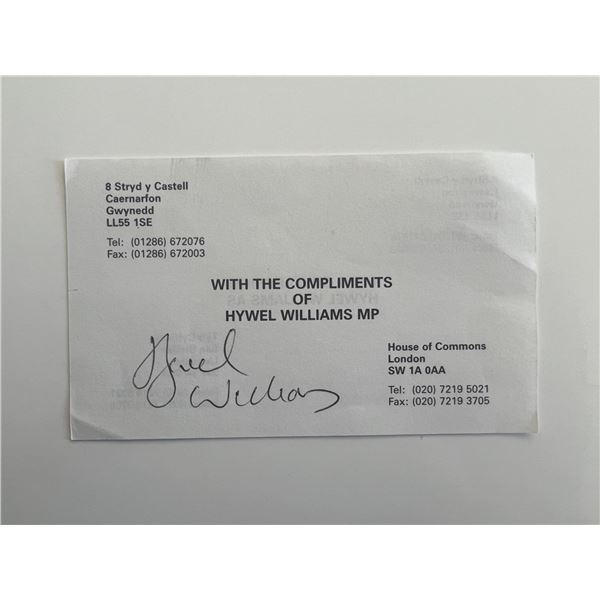 8 Stryd y Castell
Caernarfon
Gwynedd
LL55 1SE
Tel: (01286) 672076
Fax: (01286) 672003
WITH THE COMPLIMENTS
OF
HYWEL WILLIAMS MP
Hywel
Williams
House of Commons
London
SW 1A 0AA
Tel: (020) 7219 5021
Fax: (020) 7219 3705